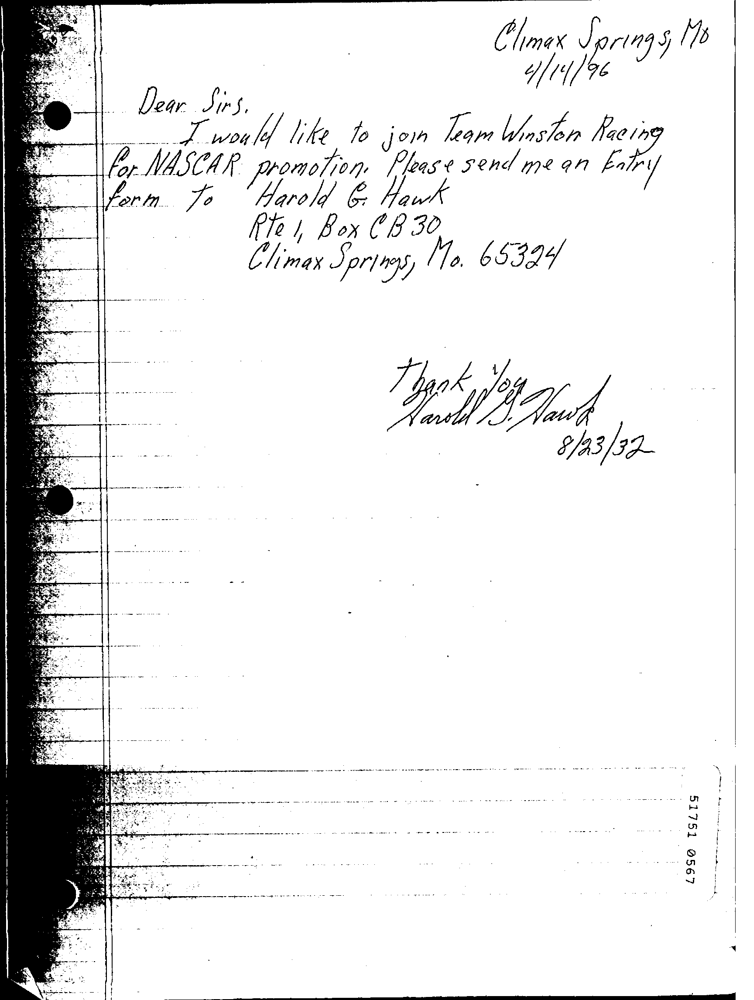 Climax Springs, Mo
4/14/96
Dear Sirs.
I would like to join Team Winston Racing
for NASCAR promotion. Please send me an Entry
form To Harold G. Hawk
Rte 1, Box CB 30
Climax Springs, Mo. 65324
Thank You
Harold G. Hawk
8/23/32
51751 0567